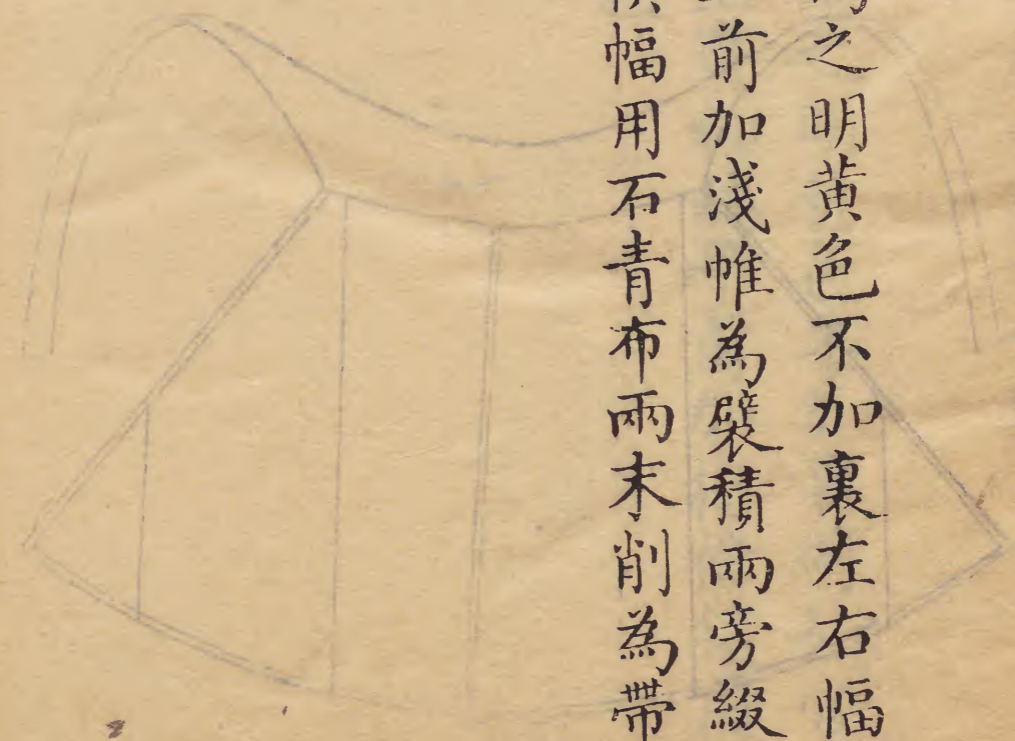 之明黄色不加裏左右幅
前加淺帷為襞積兩旁綴
幅用石青布兩末削為帶